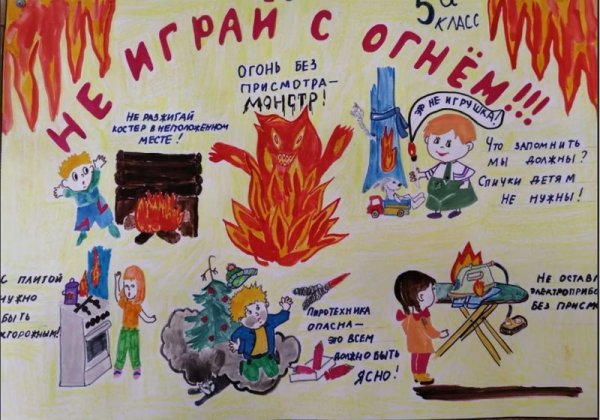 5а
КЛАСС
НЕ ИГРАЙ С ОГНЁМ!!!
ОГОНЬ БЕЗ
ПРИСМОТРА-
МОНСТР!
НЕ РАЗЖИГАЙ
КОСТЕР В НЕПОЛОЖЕННОМ
МЕСТЕ!
ЭТО НЕ ИГРУШКА!
ЧТО ЗАПОМНИТЬ
МЫ ДОЛЖНЫ?
СПИЧКИ ДЕТЯМ
НЕ НУЖНЫ!
С ПЛИТОЙ
НУЖНО
БЫТЬ
ТОРОЖНЫМ!
ПИРОТЕХНИКА
ОПАСНА-
ЭТО ВСЕМ
ДОЛЖНО БЫТЬ
ЯСНО!
НЕ ОСТАВ
ЭЛЕКТРОПРИБО
БЕЗ ПРИСМ